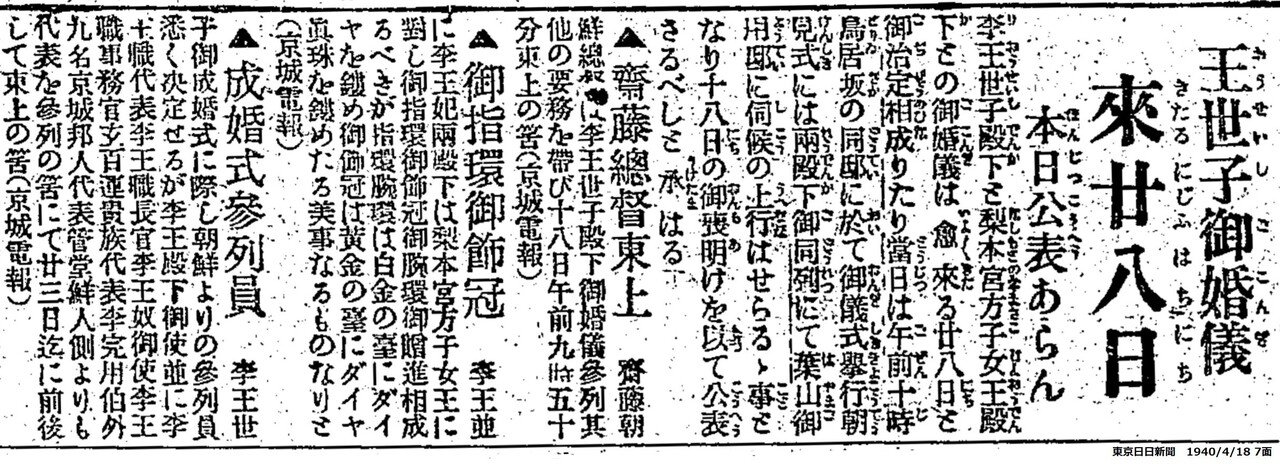 王世子御婚儀
わうせいしごこんぎ
來廿八日
きたるにじふはちにち
本日公表あらん
ほんじつこうへう
李王世子殿下と梨本宮方子女王殿
下との御婚儀は 愈 來る廿八日と
御治定相成りたり當日は午前十時
鳥居坂の同邸に於て御儀式擧行朝
見式には兩殿下御同列にて葉山御
用邸に伺候の上行はせらるゝ事と
なり十八日の御喪明けを以て公表
さるべしと 承 はる
▲齋藤總督東上 齋藤朝
鮮總は李王世子殿下御婚儀參列其
他の要務を帶び十八日午前九時五十
分東上の筈（京城電報）
▲御指環御飾冠 李王並
に李王妃兩殿下は梨本宮方子女王に
對し御指環御飾冠御腕環御贈進相成
るべきが指環腕環は白金の臺にダイ
ヤを鏤め御冠は黄金の臺にダイヤ
眞珠を鏤めたる美事なるものなりと
（京城電報）
▲成婚式參列員 李王世
子御成婚式に際し朝鮮よりの參列員
悉く決定せるが李王殿下御使並に李
王職代表李王職長官李王奴御使李王
職事務官玄百運貴族代表李完用伯外
九名京城邦人代表菅堂鮮人側よりも
代表を參列の筈にて廿三日迄に前後
して東上の筈（京城電報）
東京日日新聞 1940/4/18 7面